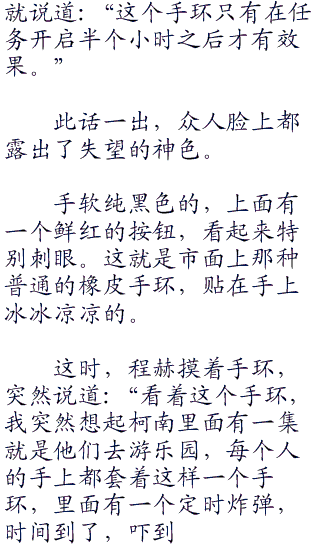 就说道：“这个手环只有在任
务开启半个小时之后才有效
果。”
此话一出，众人脸上都
露出了失望的神色。
手软纯黑色的，上面有
一个鲜红的按钮，看起来特
别刺眼。这就是市面上那种
普通的橡皮手环，贴在手上
冰冰凉凉的。
这时，程赫摸着手环，
突然说道：“看着这个手环，
我突然想起柯南里面有一集
就是他们去游乐园，每个人
的手上都套着这样一个手
环，里面有一个定时炸弹，
时间到了，吓到